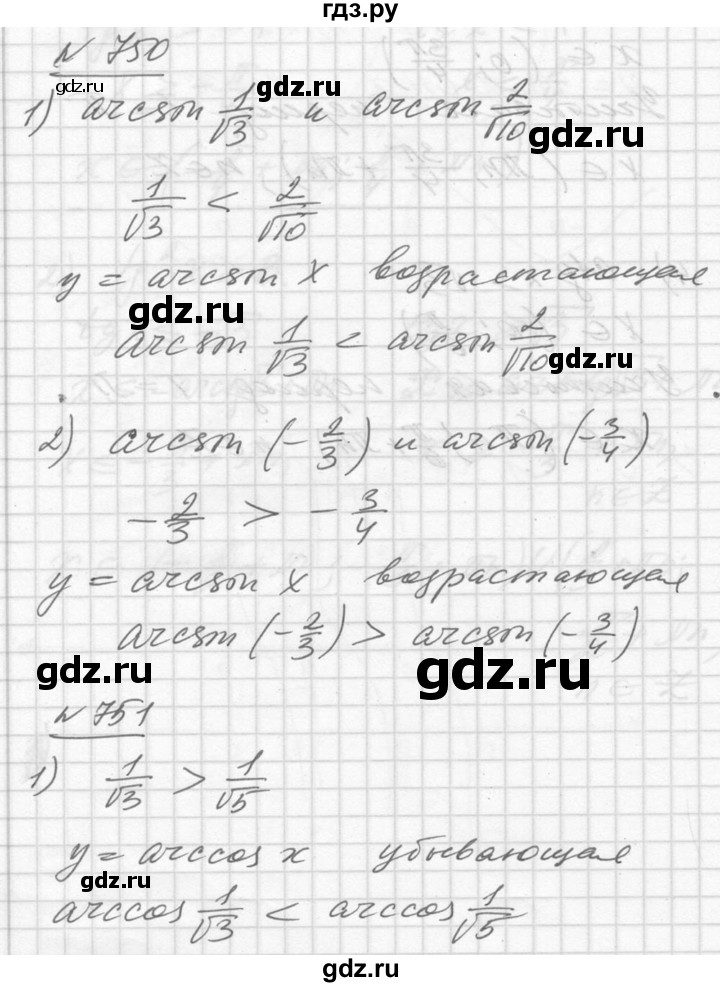 гдз.ру
№ 750
gdz.ru
gdz.ru
1) arcsin 1/√3 и arcsin 2/√10
gdz.ru
1/√3 < 2/√10
y = arcsin x возрастающая
gdz.ru
arcsin 1/√3 < arcsin 2/√10
gdz.ru
2) arcsin (-2/3) и arcsin (-3/4)
-2/3 > -3/4
y = arcsin x возрастающая
arcsin (-2/3) > arcsin (-3/4)
gdz.ru
gdz.ru
№ 751
1) 1/√3 > 1/√5
y = arccos x убывающая
gdz.ru
arccos 1/√3 < arccos 1/√5
gdz.ru